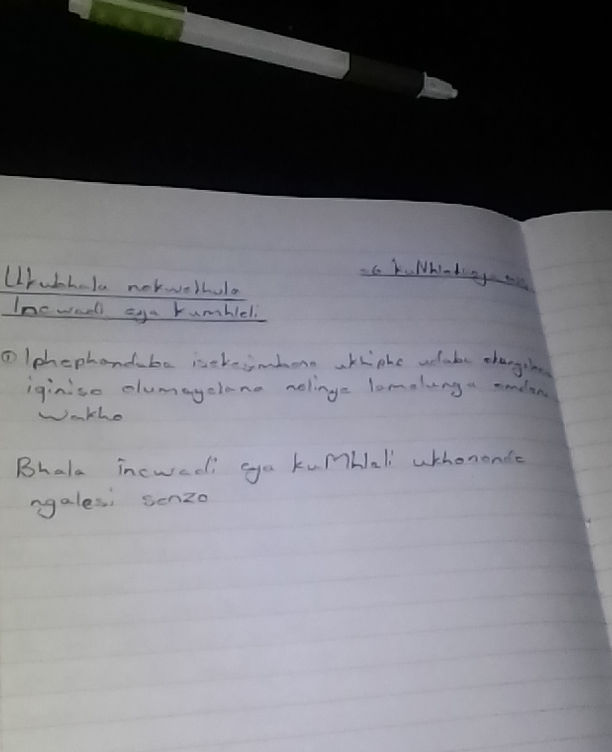 Ukubhala nokwethula
Incwadi eya kumhleli
① Iphephandaba udaba
iqiniso olumayelana nelinye lamalunga omdeni
wakho
Bhala incwadi eya kuMhleli ukhononde
ngalesi senzo